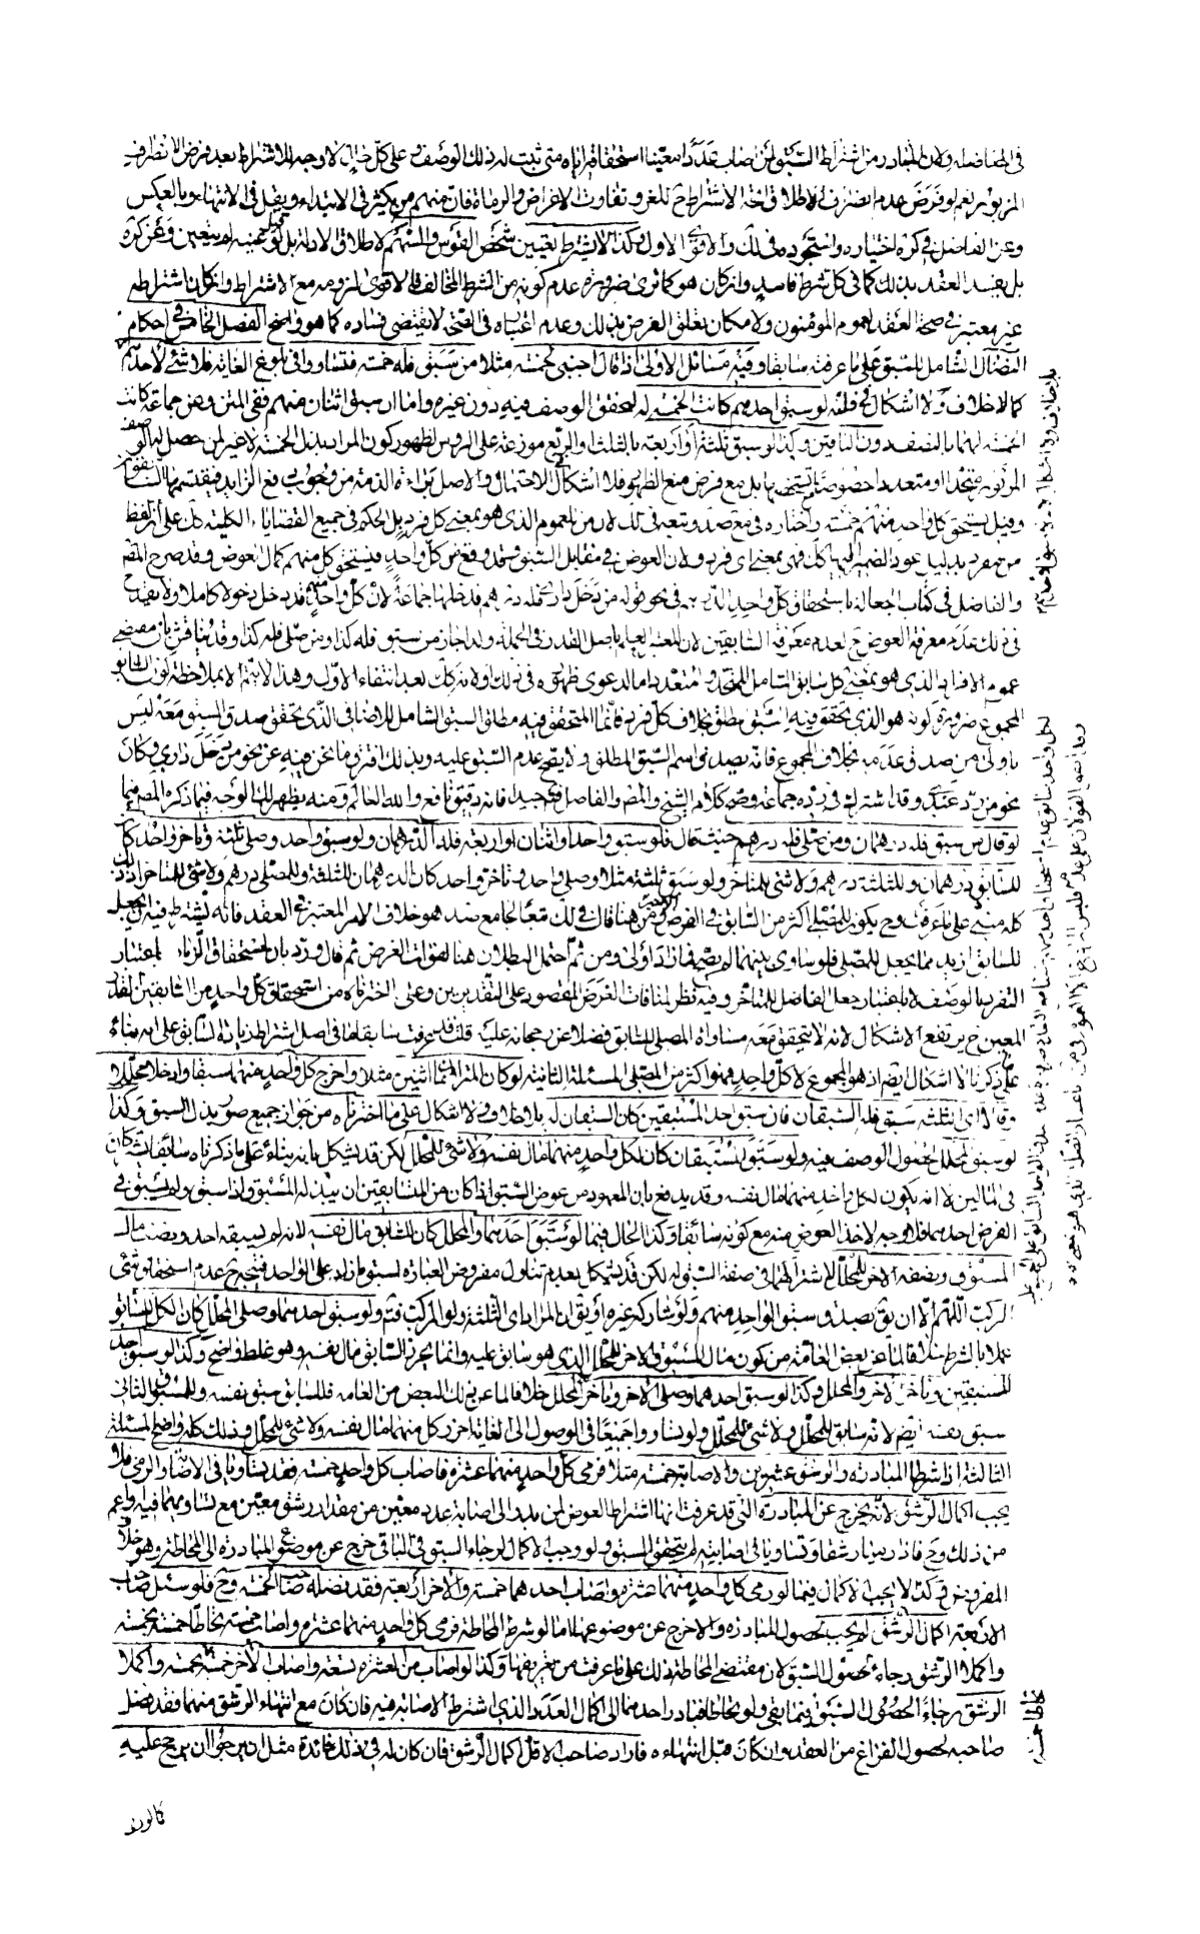 في المفاضلة ولان المتبادر من اشتراط السبق لمن اصاب عددا معينا استحقاقه اياه متى ثبت له ذلك الوصف وعلى كل حال لا وجه للاشتراط بعد فرض الانصراف
المزبور نعم لو فرض عدم انصراف الاطلاق اتجه الاشتراط للغرر وتفاوت الاغراض والرماة فان منهم من يكثر في الابتداء ويقل في الانتهاء وبالعكس
وعن الفاضل في كره اختياره واستجوده في لك والاقوى الاول وكذا لا يشترط تعيين شخص القوس والسهم لاطلاق الادلة بل لو عينه لم يتعين وعن كره
بل يفسد العقد بذلك كما في كل شرط فاسد وان كان هو كما ترى ضرورة عدم كونه من الشرط المخالف فالاقوى لزومه مع الاشتراط وان كان اشتراطه
غير معتبر في صحة العقد لعموم المؤمنون ولامكان تعلق الغرض بذلك وعدم اعتباره في الصحة لا يقتضي فساده كما هو واضح الفصل الخامس في احكام
النضال الشامل للسبق على ما عرفته سابقا وفيه مسائل الاولى اذا قال اجنبي لخمسة مثلا من سبق فله خمسة فتساووا في بلوغ الغاية فلا شيء لاحدهم
كما لا خلاف ولا اشكال في قلنه لو سبق احدهم كانت الخمسة له لتحقق الوصف فيه دون غيره واما ان سبق اثنان منهم ففي المتن وعن جماعة كانت
الخمسة لهما بالنصف دون الباقين وكذا لو سبق ثلثة او اربعة بالثلث او الربع موزعة على الرؤس لظهور كون المراد بذل الخمسة لا غير لمن حصل له الوصف
المزبور متحدا او متعددا خصوصا بل مع فرض منع الظهور فلا اشكال في الاحتمال والاصل براءة الذمة من وجوب دفع الزايد فيقتسمها
وقيل يستحق كل واحد منهم خمسة واختاره في صد وتبعه في لك لان من للعموم الذي هو بمعنى كل فرد بل الحكم في جميع القضايا الكلية دال على لفظ
من مفرد بدليل عود الضمير اليها كك فهي بمعنى اي فرد ولان العوض في مقابل السبق وقد وقع من كل واحد فيستحق كل منهم كمال العوض وقد صرح المصنف
والفاضل في كتاب الجعالة باستحقاق كل واحد الدينار في نحو قوله من دخل داري فله درهم فدخلها جماعة لان كل واحد منهم قد دخل دخولا كاملا ولا يقدح
في ذلك عدم معرفة العوض ح لعدم معرفة السابقين لان المعتبر العلم باصل القدر في الجملة ولذا جاز من سبق فله كذا ومن صلى فله كذا وقد يناقش بان مقتضى
عموم الافراد الذي هو بمعنى كل سابق الشامل للمتحد والمتعدد اما لدعوى ظهوره في ذلك او لانه كك بعد انتفاء الاول وهذا لا يتم الا بملاحظة كون السابق
المجموع ضرورة كونه هو الذي تحقق فيه السبق مطلق بخلاف كل فرد فانما المتحقق فيه مطلق السبق الشامل للاضافي الذي تحقق صدق السبق معه ليس
باولى من صدق عدمه بخلاف المجموع فانه يصدق اسم السبق المطلق ولا يصح عدم السبق عليه وبذلك افترق ما نحن فيه عن نحو من دخل داري وكان
نحو من رد عبدي وقد اشترك في رده جماعة وصح كلام الشيخ والمصنف والفاضل فتامل جيدا فانه دقيق نافع والله العالم ومنه يظهر لك الوجه فيما ذكره المصنف فيما
لو قال من سبق فله درهمان ومن صلى فله درهم حيث قال فلو سبق واحد او اثنان او اربعة فله الدرهمان ولو سبق واحد وصلى ثلثة وتاخر واحد كان
للسابق درهمان وللثلثة درهم ولا شيء للمتاخر ولو سبق ثلثة مثلا وصلى واحد وتاخر واحد كان الدرهمان للثلثة وللمصلي درهم ولا شيء للمتاخر اذ ذلك
كله مبني على ما عرفت وح يكون للمصلي اكثر من السابق في الفرض ومن هنا قال في لك تبعا لجامع صد هو خلاف الامر المعتبر في العقد فانه يشترط فيه ان يجعل
للسابق ازيد مما يجعل للمصلي فلو ساوى بينهما لم يصح فاذا زاد اولى ومن ثم احتمل البطلان هنا لفوات الغرض ثم قال ورد بان استحقاق الزيادة باعتبار
التفرد بالوصف لا باعتبار جعل الفاضل للمتاخر وفيه نظر لمنافات الغرض المقصود على التقديرين وعلى ما اخترناه من استحقاق كل واحد من السابقين القدر
المعين ح يرتفع الاشكال لانه لا يتحقق معه مساواة المصلي للسابق فضلا عن رجحانه عليه قلت قد عرفت سابقا ما في اصل اشتراط زيادة السابق على انه بناء
على ما ذكرنا لا اشكال ايضا اذ هو المجموع لا كل واحد فهو اكثر من المصلي المسئلة الثانية لو كان المتراهنان اثنين مثلا واخرج كل واحد منهما سبقا وادخلا محللا
وقالا اي الثلثة سبق فله السبقان فان سبق احد المستبقين كان السبقان له بلا خلاف ولا اشكال على ما اخترناه من جواز جميع صور بذل السبق وكذا
لو سبق المحلل لحصول الوصف فيه ولو سبق المستبقان كان لكل واحد منهما مال نفسه ولا شيء للمحلل لكن قد يشكل بانه بناء على ما ذكرناه سابقا كان
في المالين لا انه يكون لكل واحد منهما مال نفسه وقد يدفع بان المعهود من عوض السبق اذا كان من المتسابقين ان يبذله المسبوق اذا سبق ولم يسبق في
الفرض احدهما فلا وجه لاخذ العوض منه مع كونه سابقا وكذا الحال فيما لو سبق احدهما والمحلل كان للسابق مال نفسه لانه لم يسبقه احد ونصف مال
المسبوق ونصفه الاخر للمحلل لاشتراكهما في صفة السبق له لكن قد يشكل بعدم تناول مفروض العبارة لسبق ما زاد على الواحد فيتجه ح عدم استحقاق شيء
المركب اللهم الا ان يق بصدق سبق الواحد منهم ولو شاركه غيره او يق ان المراد اي الثلثة ولو المركب فتم ولو سبق احدهما وصلى المحلل كان الكل للسابق
عملا بالشرط خلافا لما عن بعض العامة من كون مال المسبوق الاخر للمحلل الذي هو سابق عليه وانما يحرز السابق مال نفسه وهو غلط واضح وكذا لو سبق احد
المستبقين وتاخر الاخر والمحلل وكذا لو سبق احدهما وصلى الاخر وتاخر المحلل خلافا لما عن ذلك البعض من العامة فللسابق سبق نفسه وللمسبوق الثاني
سبق نفسه ايضا لانه سابق للمحلل ولا شيء للمحلل ولو تساووا جميعا في الوصول الى الغاية احرز كل منهما مال نفسه ولا شيء للمحلل وذلك كله واضح المسئلة
الثالثة اذا شرطا المبادرة والرشق عشرين والاصابة خمسة مثلا فرمى كل واحد منهما عشرة فاصاب كل واحد خمسة فقد تساويا في الاصابة والرمي فلا
يجب اكمال الرشق لانه يخرج عن المبادرة التي قد عرفت انها اشتراط العوض لمن بدر الى اصابة عدد معين من مقدار رشق معين مع تساويهما فيه او اعم
من ذلك وح فاذا رميا رشقا وتساويا في اصابته لم يتحقق السبق ولو وجب الاكمال لرجاء السبق في الباقي خرج عن موضوع المبادرة الى المحاطة وهو خلاف
المفروض وكذا لا يجب الاكمال فيما لو رمى كل واحد منهما عشرة فاصاب احدهما خمسة والاخر اربعة فقد نضله صاحب الخمسة وح فلو سئل صاحب
الاربعة اكمال الرشق لم يجب لحصول المبادرة والا خرج عن موضوعها اما لو شرطا المحاطة فرمى كل واحد منهما عشرة واصاب خمسة تحاطا خمسة بخمسة
واكملا الرشق رجاء لحصول السبق لان مقتضى المحاطة ذلك على ما عرفت من تعريفها وكذا لو اصاب من العشرة تسعة واصاب الاخر خمسة بخمسة واكملا
الرشق رجاء لحصول السبق فيما بقي ولو تحاطا فبادر احدهما الى اكمال العدد الذي اشترط الاصابة فيه فان كان مع انتهاء الرشق منهما فقد نضل
صاحبه لحصول الفراغ من العقد وان كان قبل انتهاءه فاراد صاحب الاقل اكمال الرشق فان كان له في ذلك فائدة مثل ان يرجو ان يرجح عليه
تحاطا خمسة